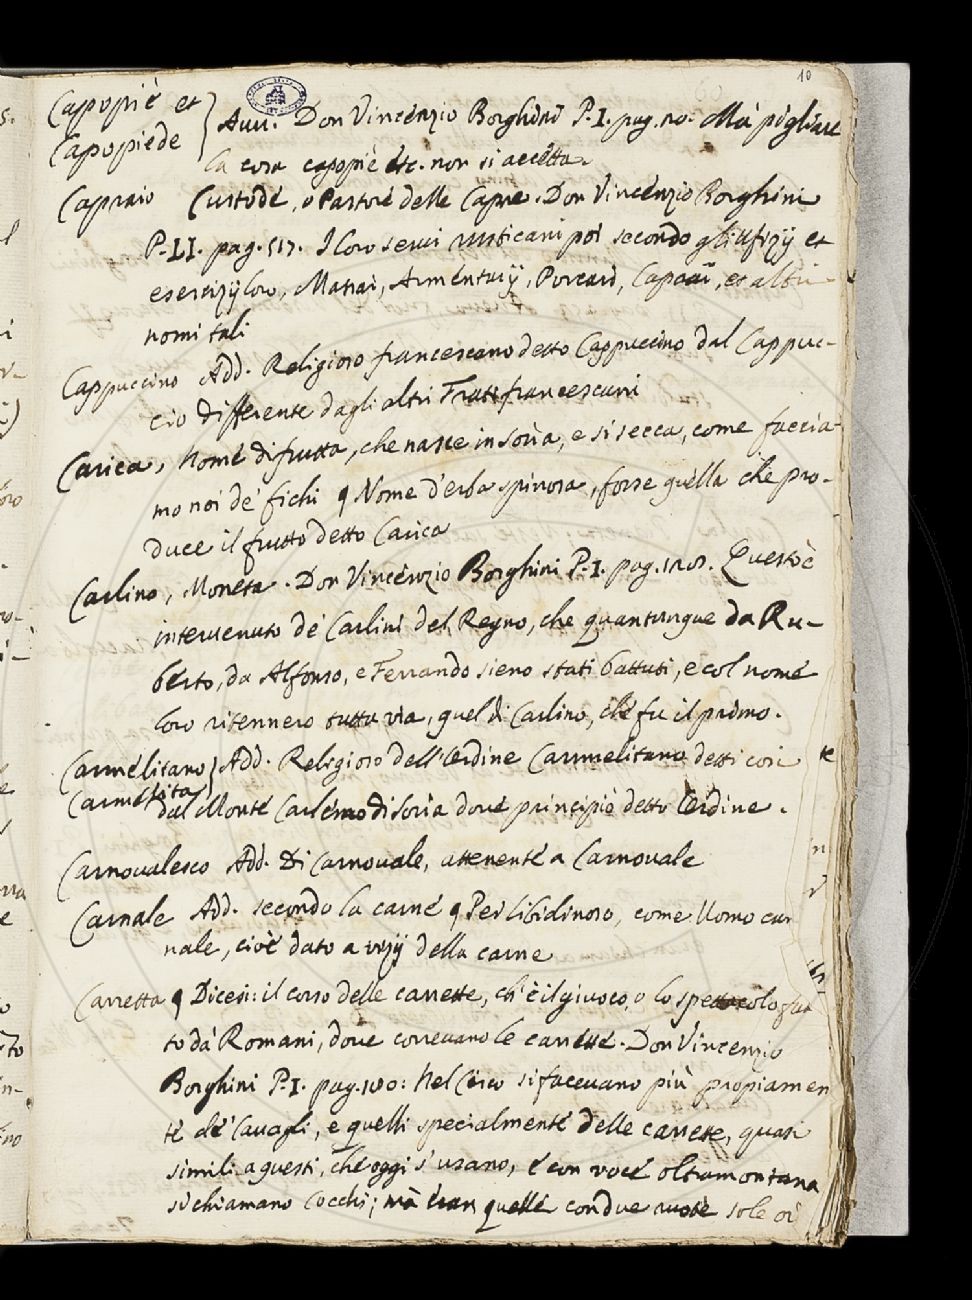 10
Capopiè et
Capopiede
Avv. Don Vincénzio Borghini P. I. pag. 120. Mà pigliare
la cosa capopiè etc. non si accétta.
Capraio Custode, o Pastoré delle Capre. Don Vincénzio Borghini
P. LI. pag. 517. I loro servi rusticani poi secondo gli ufizij et
esercizij loro, Armentarij, Porcarij, Caprarij, et altri
nomi tali
Cappuccino Add. Religioso francescano detto Cappuccino dal Cappuc-
cio differente dagli altri Frati francescani
Carica, Nomé di frutta, che nasce in Sorìa, e si secca, come faccia-
mo noi de' fichi q Nome d'erba spinosa, forse quella che pro-
duce il frutto detto Carica
Carlino, Moneta. Don Vincénzio Borghini P. I. pag. Questo è
intervenuto de' Carlini del Regno, che quantunque da Ru-
berto, da Alfonso, e Ferrando sieno stati battuti, e col nomé
loro ritennero tutta via, quel di Carlino, ché fu il primo.
Carmélitano Add. Religioso dell'Ordine Carmelitano detti così
Carmélita dal Monté Carlémo di Soria dové principiò detto Ordine.
Carnovalesco Add. Di Carnovale, attenenté a Carnovale
Carnale Add. secondo la carné q Per libidinoso, come Uomo car
nale, cioè dato a vizij della carne
Carretta q Dicesi: il corso delle carrette, ch'è il giuoco, o lo spettacolo fat
to dà Romani, dove correvano le carretté. Don Vincenzio
Borghini P. I. pag. 180: Nel Cérco si facevano più propiamen
té dé Cavagli, e quelli specialmenté delle carrette, quasi
simili a questi, ché oggi s'usano, é con vocé oltramontana
si chiamano Cocchi; mà éran quellé con due ruoté sole di